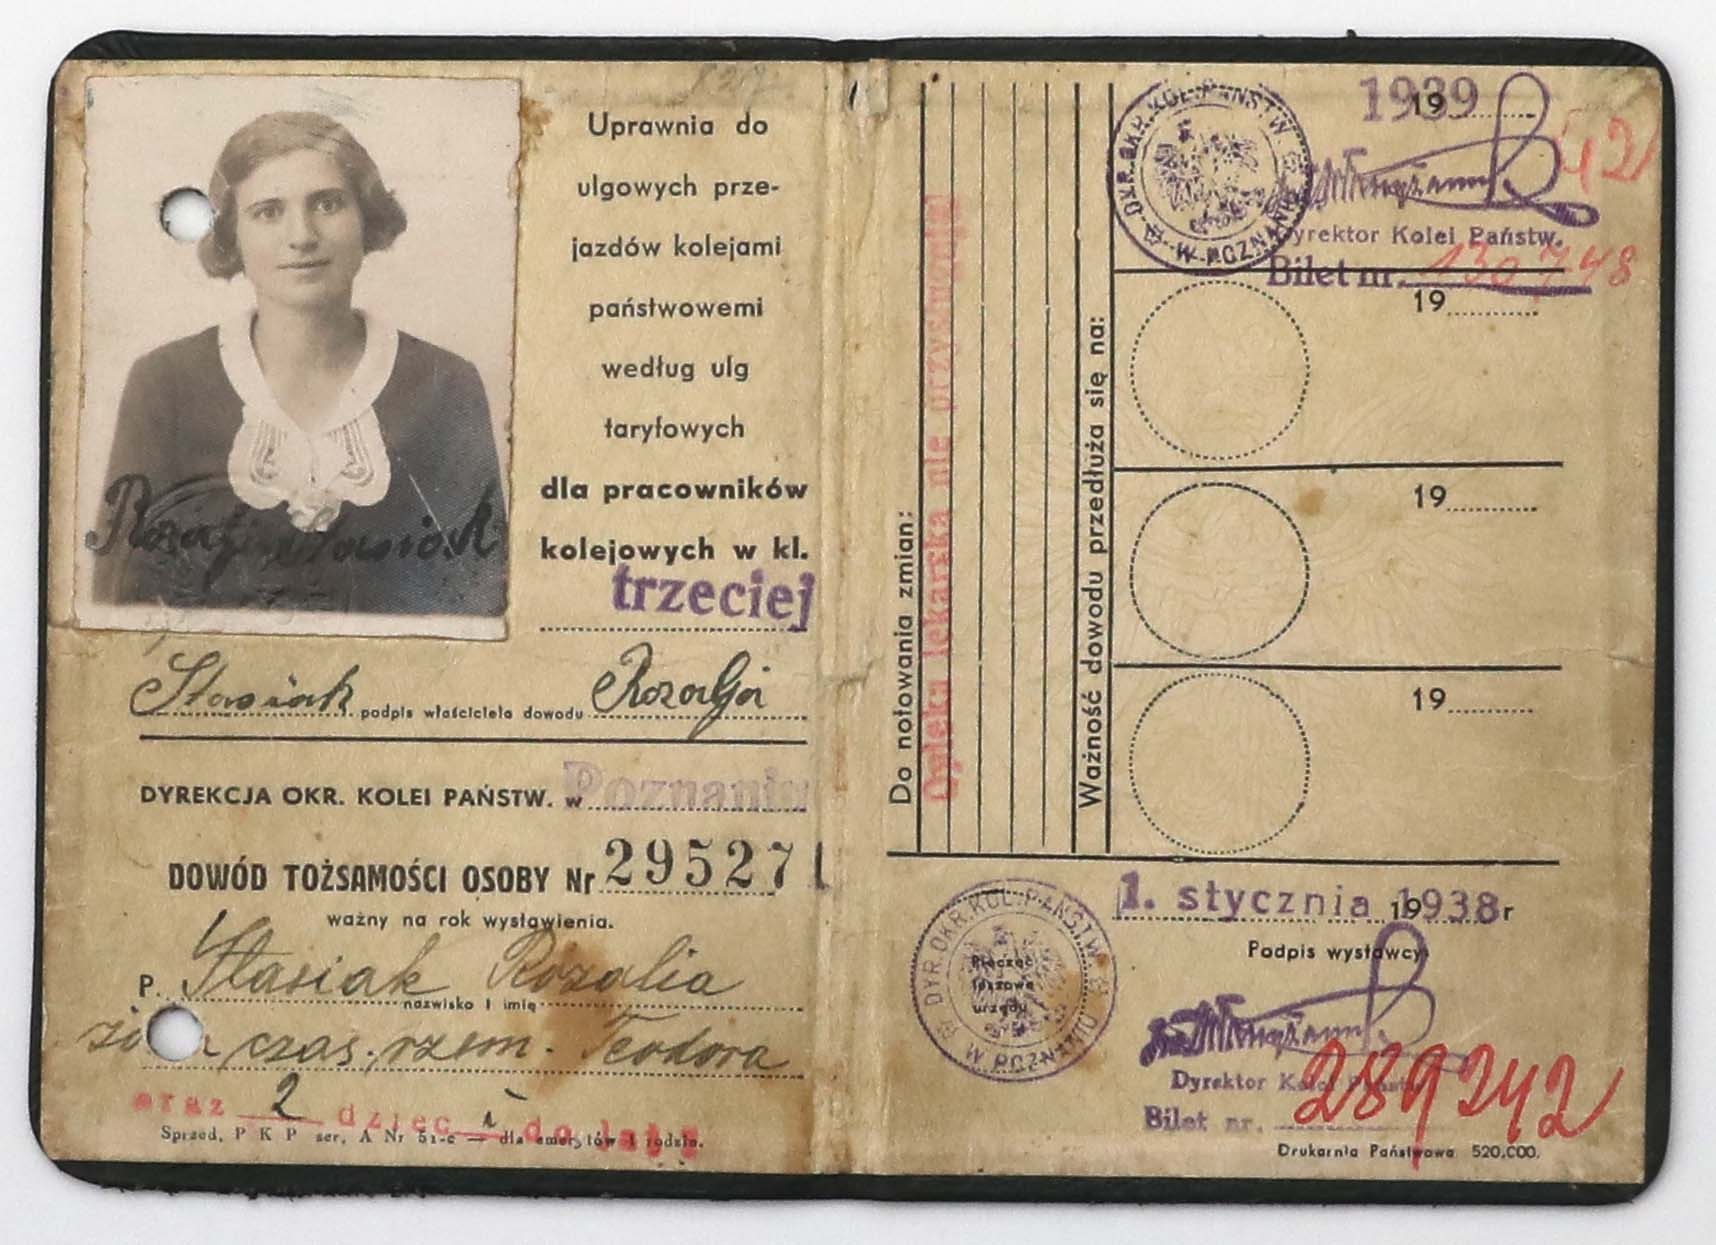 Uprawnia do
ulgowych prze-
jazdów kolejami
państwowemi
według ulg
taryfowych
dla pracowników
kolejowych w kl.
trzeciej
Stasiak podpis właściciela dowodu Rozalja
DYREKCJA OKR. KOLEI PAŃSTW. w Poznaniu
DOWÓD TOŻSAMOŚCI OSOBY Nr 295271
ważny na rok wystawienia.
P. Stasiak Rozalia
nazwisko i imię
żona czas. rzem. Teodora
oraz 2 dzieci do lat
Sprzed. P K P ser. A Nr 51-c — dla emerytów i rodzin.
Do notowania zmian:
Opieka lekarska nie przysługuje
Ważność dowodu przedłuża się na:
DYR. OKR. KOL. PAŃSTW. W POZNANIU
1939
19
42
Dyrektor Kolei Państw.
Bilet nr. 130748
19
19
19
DYR. OKR. KOL. PAŃSTW. W POZNANIU
Pieczęć
tuszowa
urzędu
1. stycznia 1938 r
Podpis wystawcy
Dyrektor Kolei Państw.
Bilet nr. 289242
Drukarnia Państwowa 520.000.